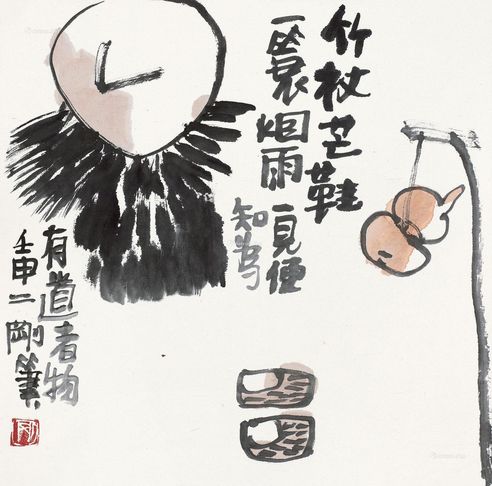 竹杖芒鞋
一蓑烟雨一見便
知为
有道者物
壬申二剛筆